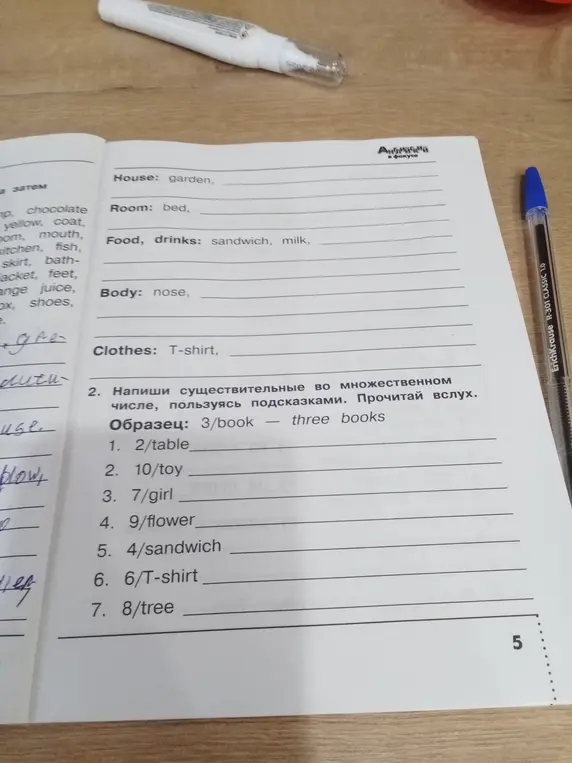 Английский
в фокусе
а затем
chocolate
yellow, coat,
mouth,
kitchen, fish,
skirt, bath-
jacket, feet,
juice,
shoes,
House: garden,
Room: bed,
Food, drinks: sandwich, milk,
Body: nose,
Clothes: T-shirt,
2. Напиши существительные во множественном
числе, пользуясь подсказками. Прочитай вслух.
Образец: 3/book — three books
1. 2/table
2. 10/toy
3. 7/girl
4. 9/flower
5. 4/sandwich
6. 6/T-shirt
7. 8/tree
5
ErichKrause R-301 CLASSIC 1.0